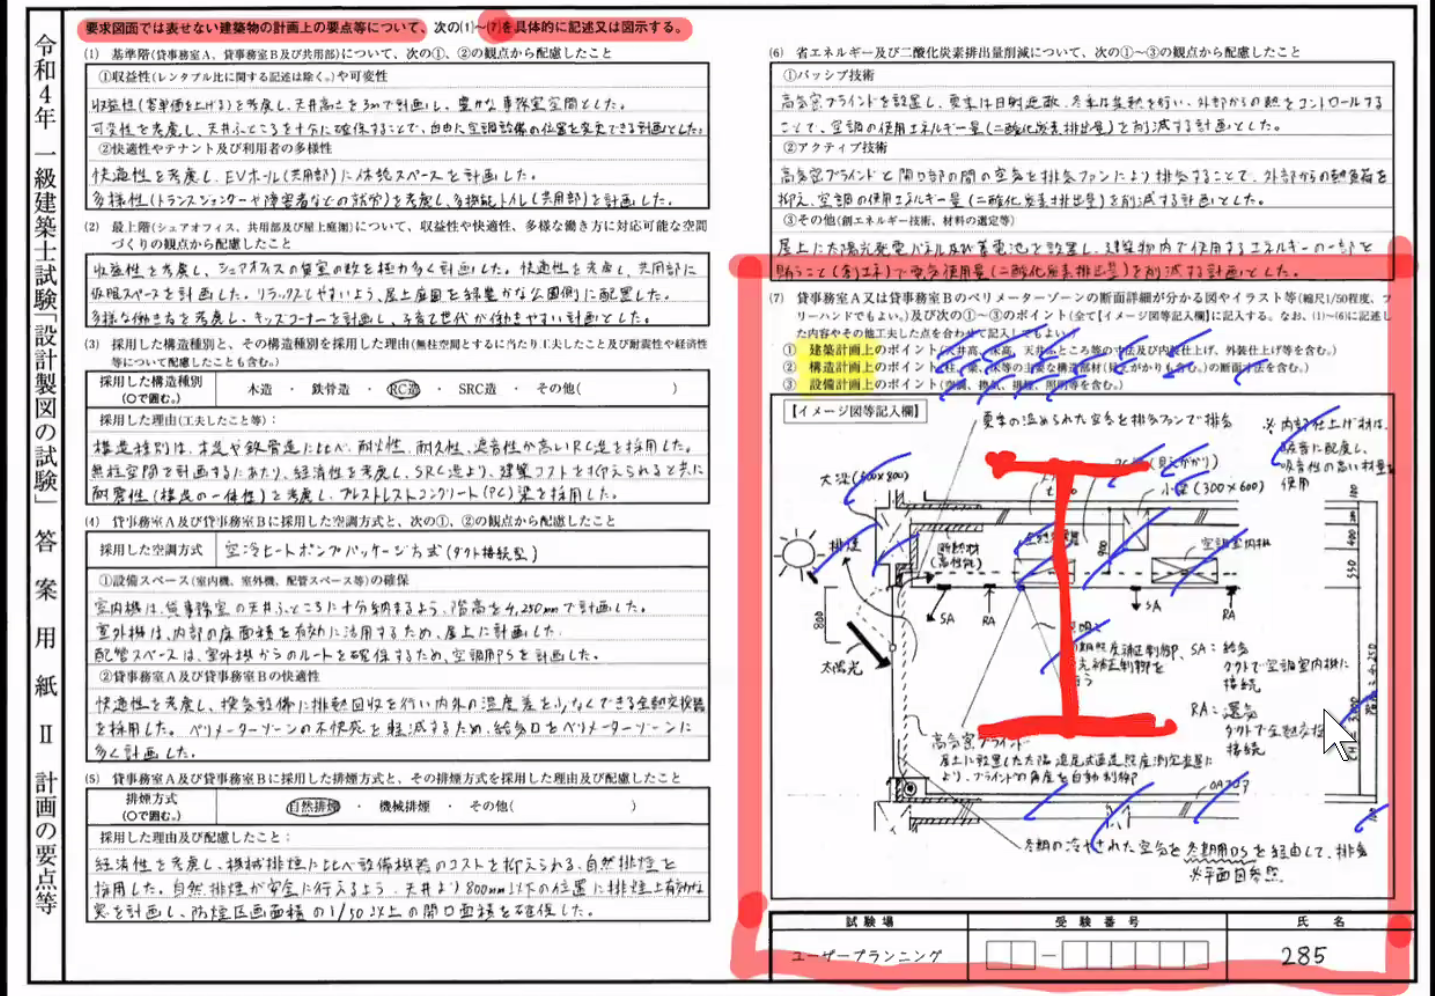 令和4年 一級建築士試験「設計製図の試験」 答案用紙Ⅱ 計画の要点等
要求図面では表せない建築物の計画上の要点等について、次の(1)~(7)を具体的に記述又は図示する。
(1) 基準階(貸事務室A、貸事務室B及び共用部)について、次の①、②の観点から配慮したこと
①収益性(レンタブル比に関する記述は除く。)や可変性
収益性(客単価を上げる)を考慮し、天井高さを3mで計画し、豊かな事務室空間とした。
可変性を考慮し、天井ふところを十分に確保することで、自由に空調設備の位置を変更できる計画とした。
②快適性やテナント及び利用者の多様性
快適性を考慮し、EVホール(共用部)に休憩スペースを計画した。
多様性(トランスジェンダーや障害者などの就労)を考慮し、多機能トイレ(共用部)を計画した。
(2) 最上階(シェアオフィス、共用部及び屋上庭園)について、収益性や快適性、多様な働き方に対応可能な空間
づくりの観点から配慮したこと
収益性を考慮し、シェアオフィスの貸室の数を極力多く計画した。快適性を考慮し、共用部に
仮眠スペースを計画した。リラックスしやすいよう、屋上庭園を緑豊かな公園側に配置した。
多様な働き方を考慮し、キッズコーナーを計画し、子育て世代が働きやすい計画とした。
(3) 採用した構造種別と、その構造種別を採用した理由(無柱空間とするに当たり工夫したこと及び耐震性や経済性
等について配慮したことも含む。)
採用した構造種別
(○で囲む。)
木造 ・ 鉄骨造 ・ RC造 ・ SRC造 ・ その他( )
採用した理由(工夫したこと等):
構造種別は、木造や鉄骨造に比べ、耐火性、耐久性、遮音性が高いRC造を採用した。
無柱空間を計画するにあたり、経済性を考慮し、SRC造より、建築コストを抑えられると共に
耐震性(構造の一体性)を考慮し、プレストレストコンクリート(PC)梁を採用した。
(4) 貸事務室A及び貸事務室Bに採用した空調方式と、次の①、②の観点から配慮したこと
採用した空調方式
空冷ヒートポンプパッケージ方式(ダクト接続型)
①設備スペース(室内機、室外機、配管スペース等)の確保
室内機は、貸事務室の天井ふところに十分納まるよう、階高を4,250mmで計画した。
室外機は、内部の床面積を有効に活用するため、屋上に計画した。
配管スペースは、室外機からのルートを確保するため、空調用PSを計画した。
②貸事務室A及び貸事務室Bの快適性
快適性を考慮し、換気設備に排熱回収を行い内外の温度差を少なくできる全熱交換器
を採用した。ペリメーターゾーンの不快感を軽減するため、給気口をペリメーターゾーンに
多く計画した。
(5) 貸事務室A及び貸事務室Bに採用した排煙方式と、その排煙方式を採用した理由及び配慮したこと
排煙方式
(○で囲む。)
自然排煙 ・ 機械排煙 ・ その他( )
採用した理由及び配慮したこと:
経済性を考慮し、機械排煙に比べ設備機器のコストを抑えられる、自然排煙を
採用した。自然排煙が安全に行えるよう、天井より800mm以下の位置に排煙上有効な
窓を計画し、防煙区画面積の1/50以上の開口面積を確保した。
(6) 省エネルギー及び二酸化炭素排出量削減について、次の①~③の観点から配慮したこと
①パッシブ技術
高気密ブラインドを設置し、夏季は日射遮蔽、冬季は集熱を行い、外部からの熱をコントロールする
ことで、空調の使用エネルギー量(二酸化炭素排出量)を削減する計画とした。
②アクティブ技術
高気密ブラインドと開口部の間の空気を排気ファンにより排気することで、外部からの熱負荷を
抑え、空調の使用エネルギー量(二酸化炭素排出量)を削減する計画とした。
③その他(創エネルギー技術、材料の選定等)
屋上に太陽光発電パネル及び蓄電池を設置し、建築物内で使用するエネルギーの一部を
賄うこと(創エネ)で電気使用量(二酸化炭素排出量)を削減する計画とした。
(7) 貸事務室A又は貸事務室Bのペリメーターゾーンの断面詳細が分かる図やイラスト等(縮尺1/50程度、フ
リーハンドでもよい。)及び次の①~③のポイント(全て【イメージ図等記入欄】に記入する。なお、(1)~(6)に記述し
た内容やその他工夫した点を合わせて記入してもよい。)
① 建築計画上のポイント(天井高、床高、天井ふところ等の寸法及び内装仕上げ、外装仕上げ等を含む。)
② 構造計画上のポイント(柱、梁、床等の主要な構造部材(見えがかりも含む。)の断面寸法を含む。)
③ 設備計画上のポイント(空調、換気、排煙、照明等を含む。)
【イメージ図等記入欄】
夏季の温められた空気を排気ファンで排気
※内部仕上げ材は、
吸音に配慮し、
吸音性の高い材料を
使用
(見えがかり)
大梁(500×800)
小梁(300×600)
排煙
断熱材
(高性能)
空調室内機
900
100
400
550
800
SA
RA
SA
RA
太陽光
SA: 給気
ダクトで空調室内機に
接続
RA: 還気
ダクトで全熱交換
接続
高気密ブラインド
屋上に設置した太陽追尾式直達照度測定装置に
より、ブラインドの角度を自動制御
OAフロア
100
冬期の冷やされた空気を冬期用DSを経由して、排気
※平面図参照
試験場
受験番号
氏名
ユーザープランニング
285